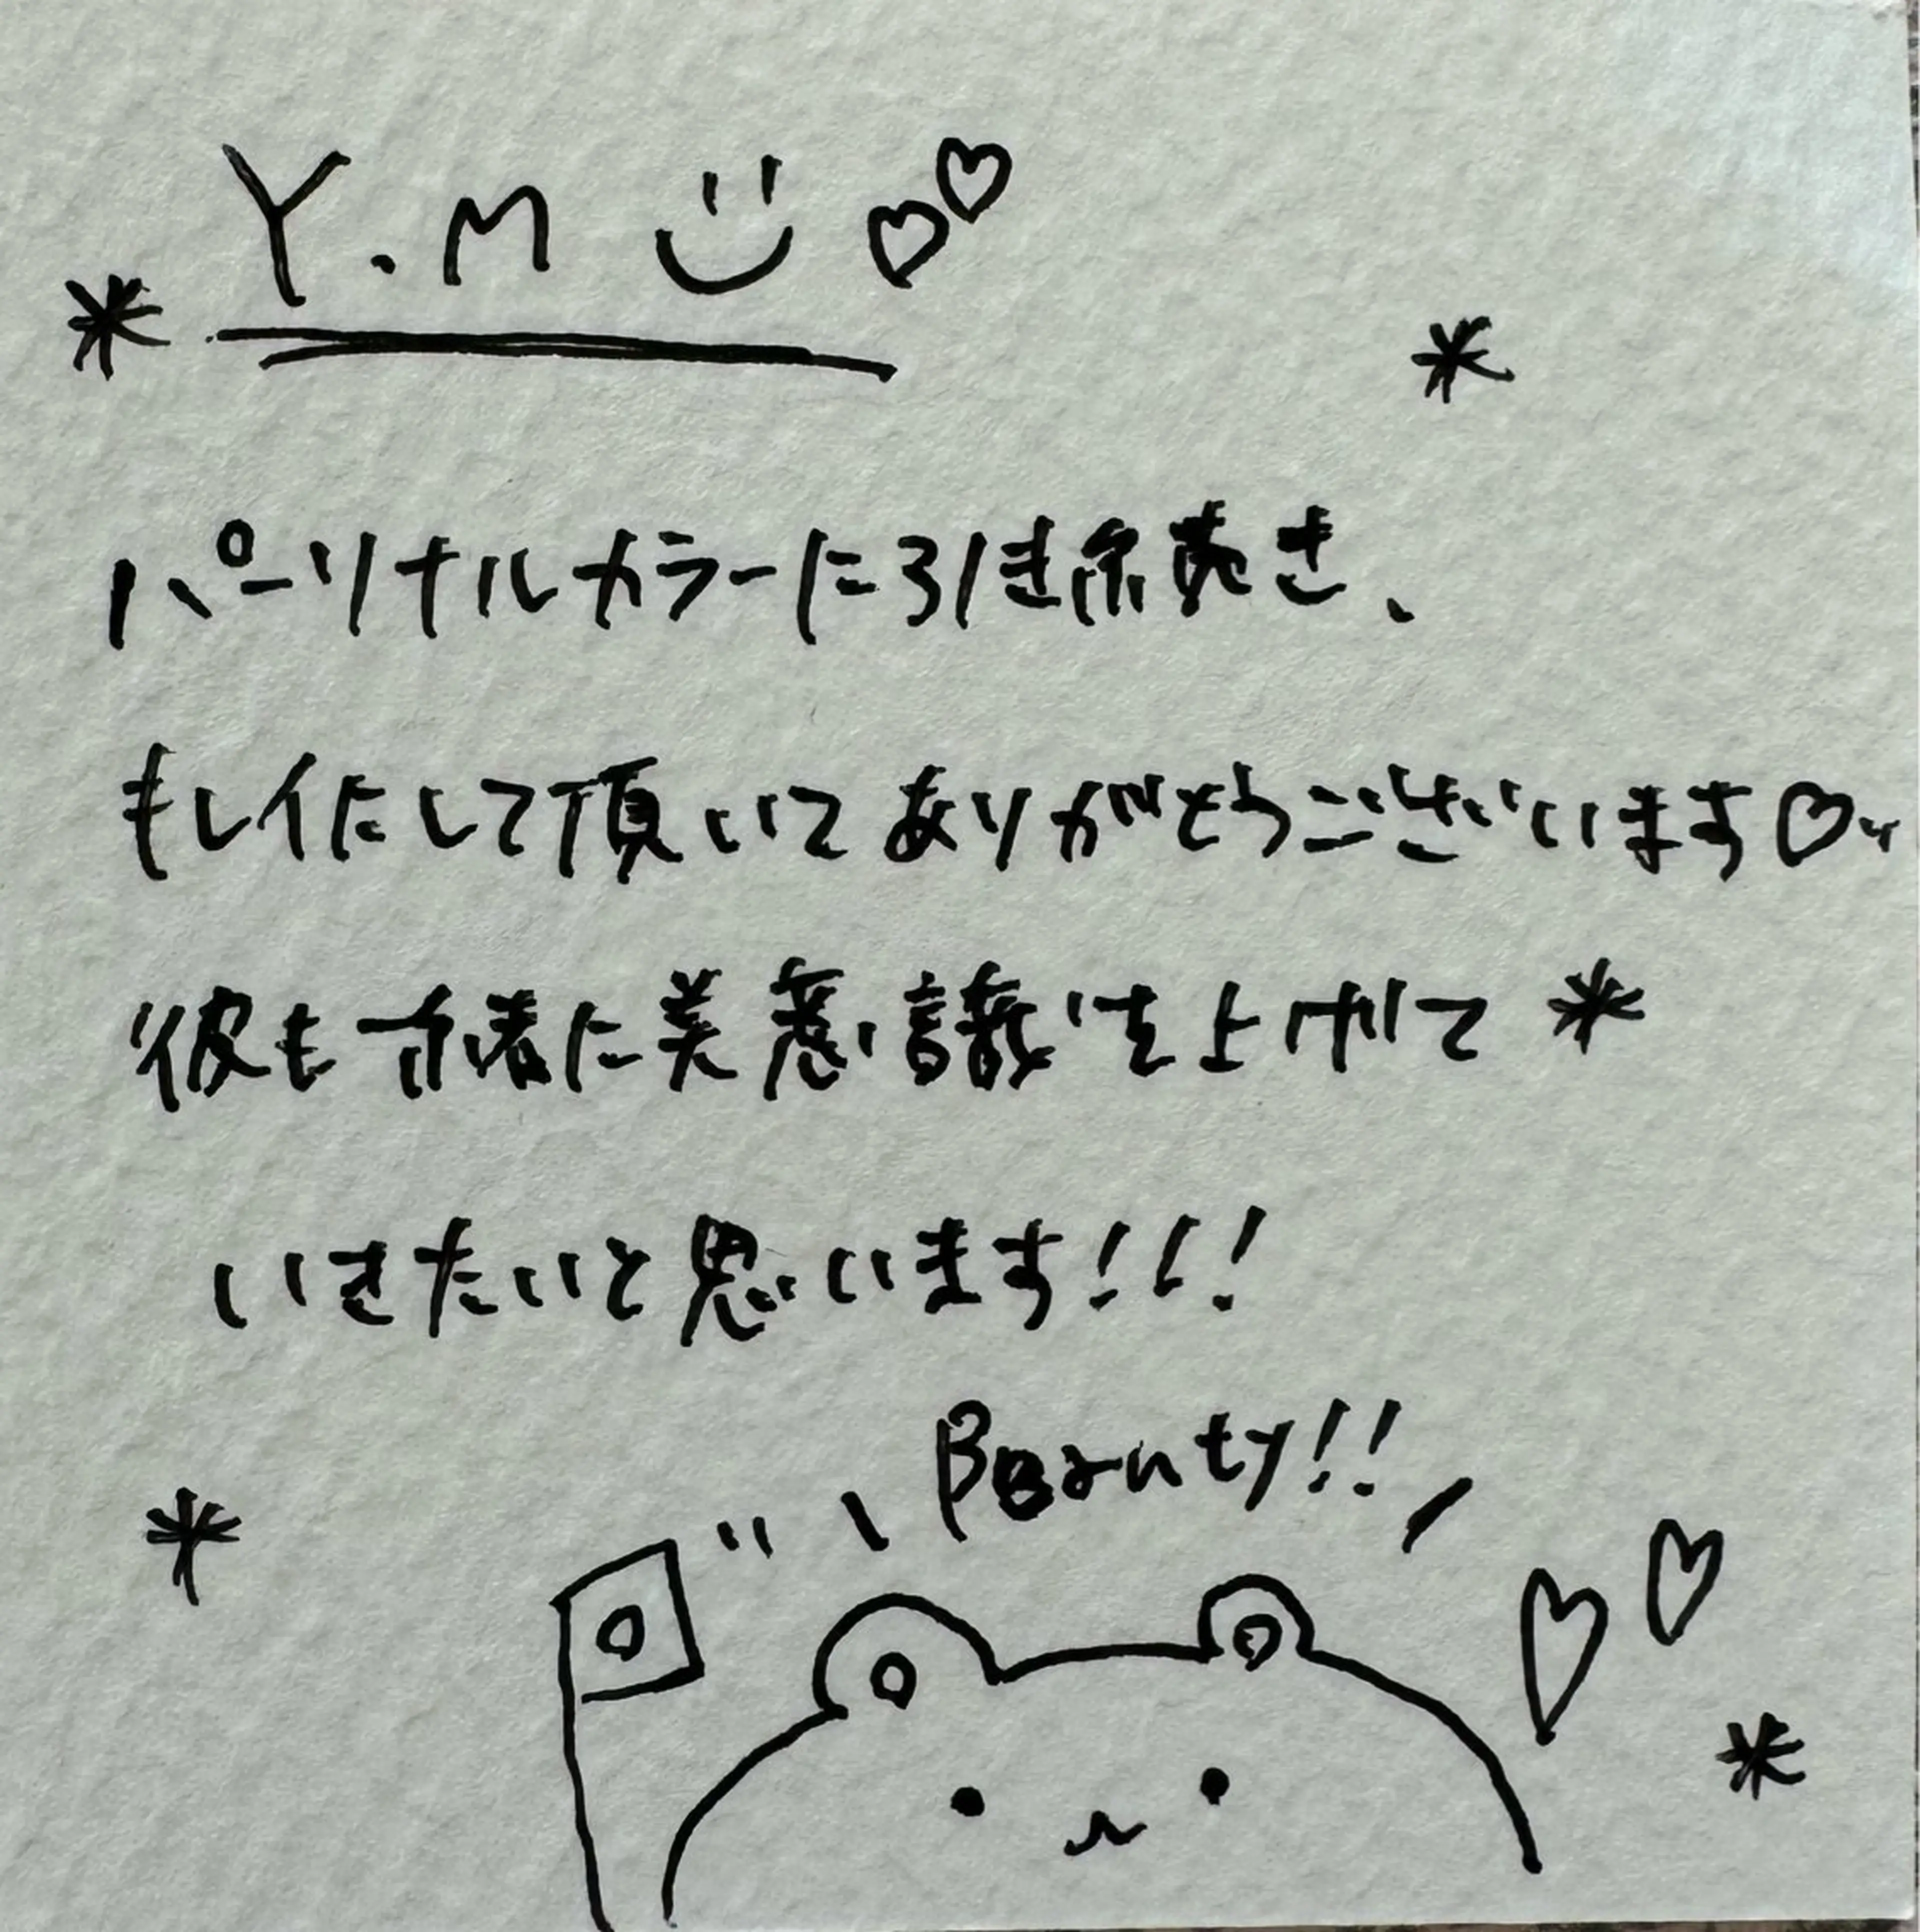 Y.M
パーソナルカラーに引き続き、
も して頂いてありがとうございます♡
彼も一緒に美意識を上げて
いきたいと思います!!!
Beauty!!